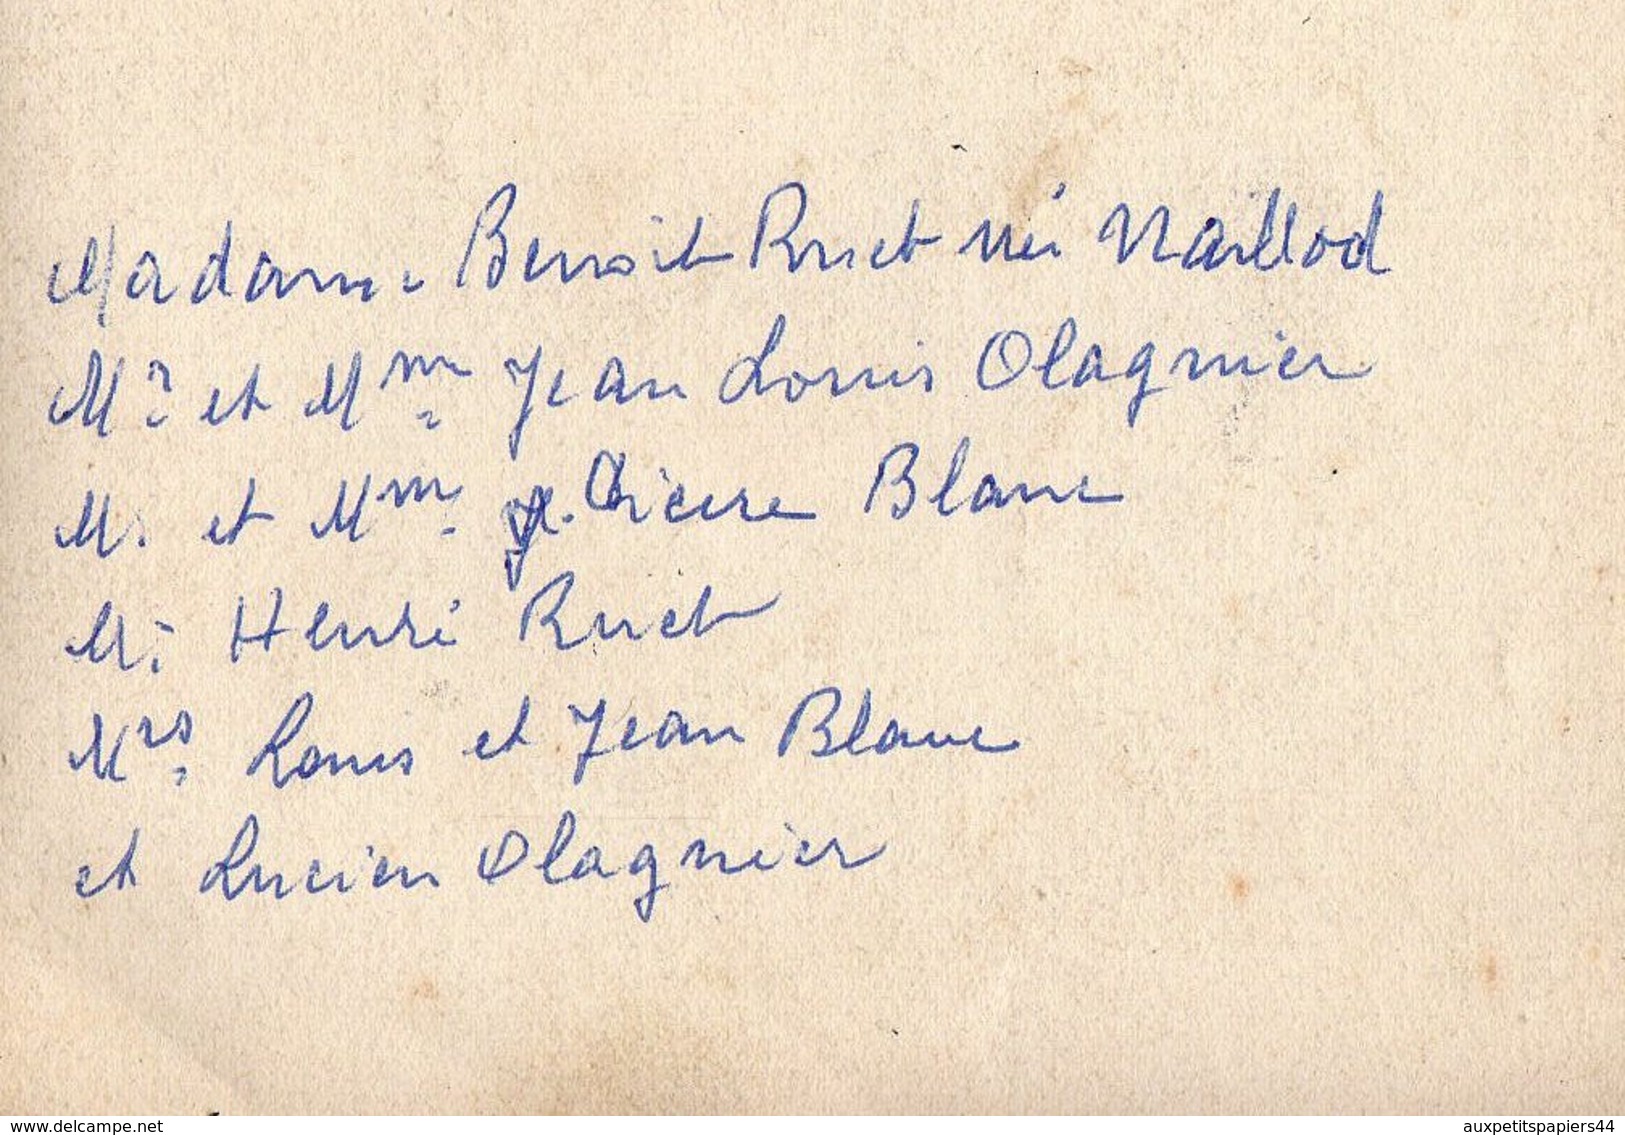 Madame Benoit Ruet née Naillod
Mr et Mme Jean Louis Olagnier
M. et Mme J. Blanc
Mr Henri Ruet
Mrs Louis et Jean Blanc
et Lucien Olagnier
www.delcampe.net
auxpetitspapiers44